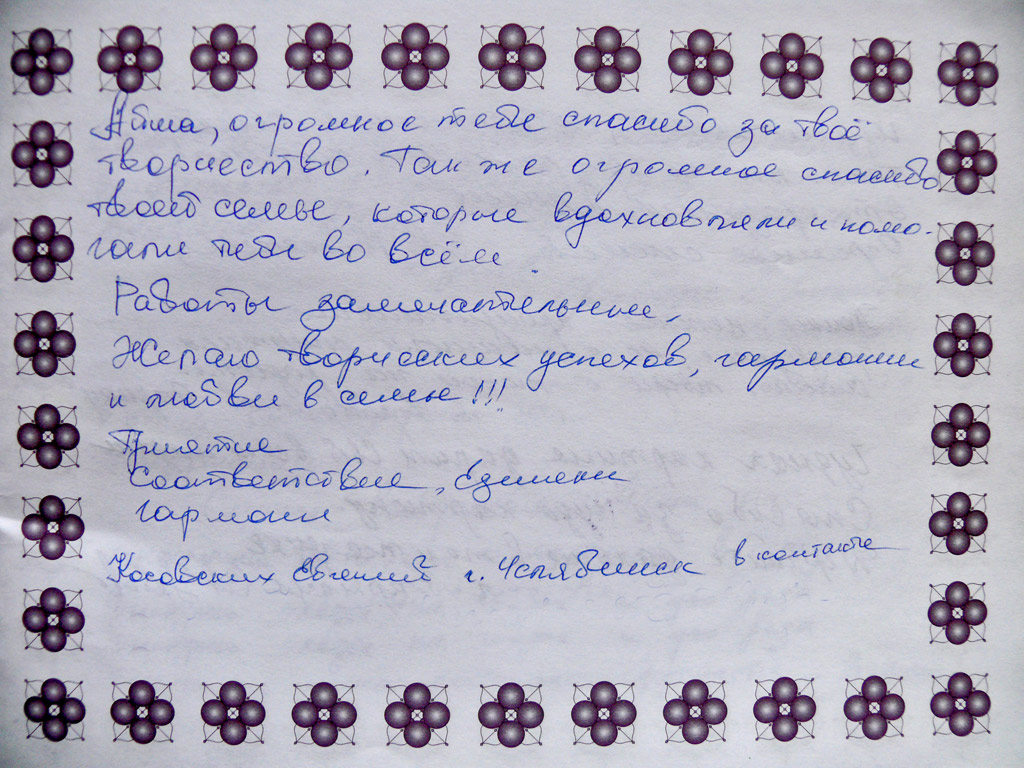 огромное тебе спасибо за твоё
творчество. Так же огромное спасибо
твоей семье, которые вдохновляли и помо-
гали тебе во всём.
Работы замечательные.
Желаю творческих успехов, гармонии
и любви в семье!!!
Приятие
Соответствие,
Гармония
Евгений г. Челябинск в контакте